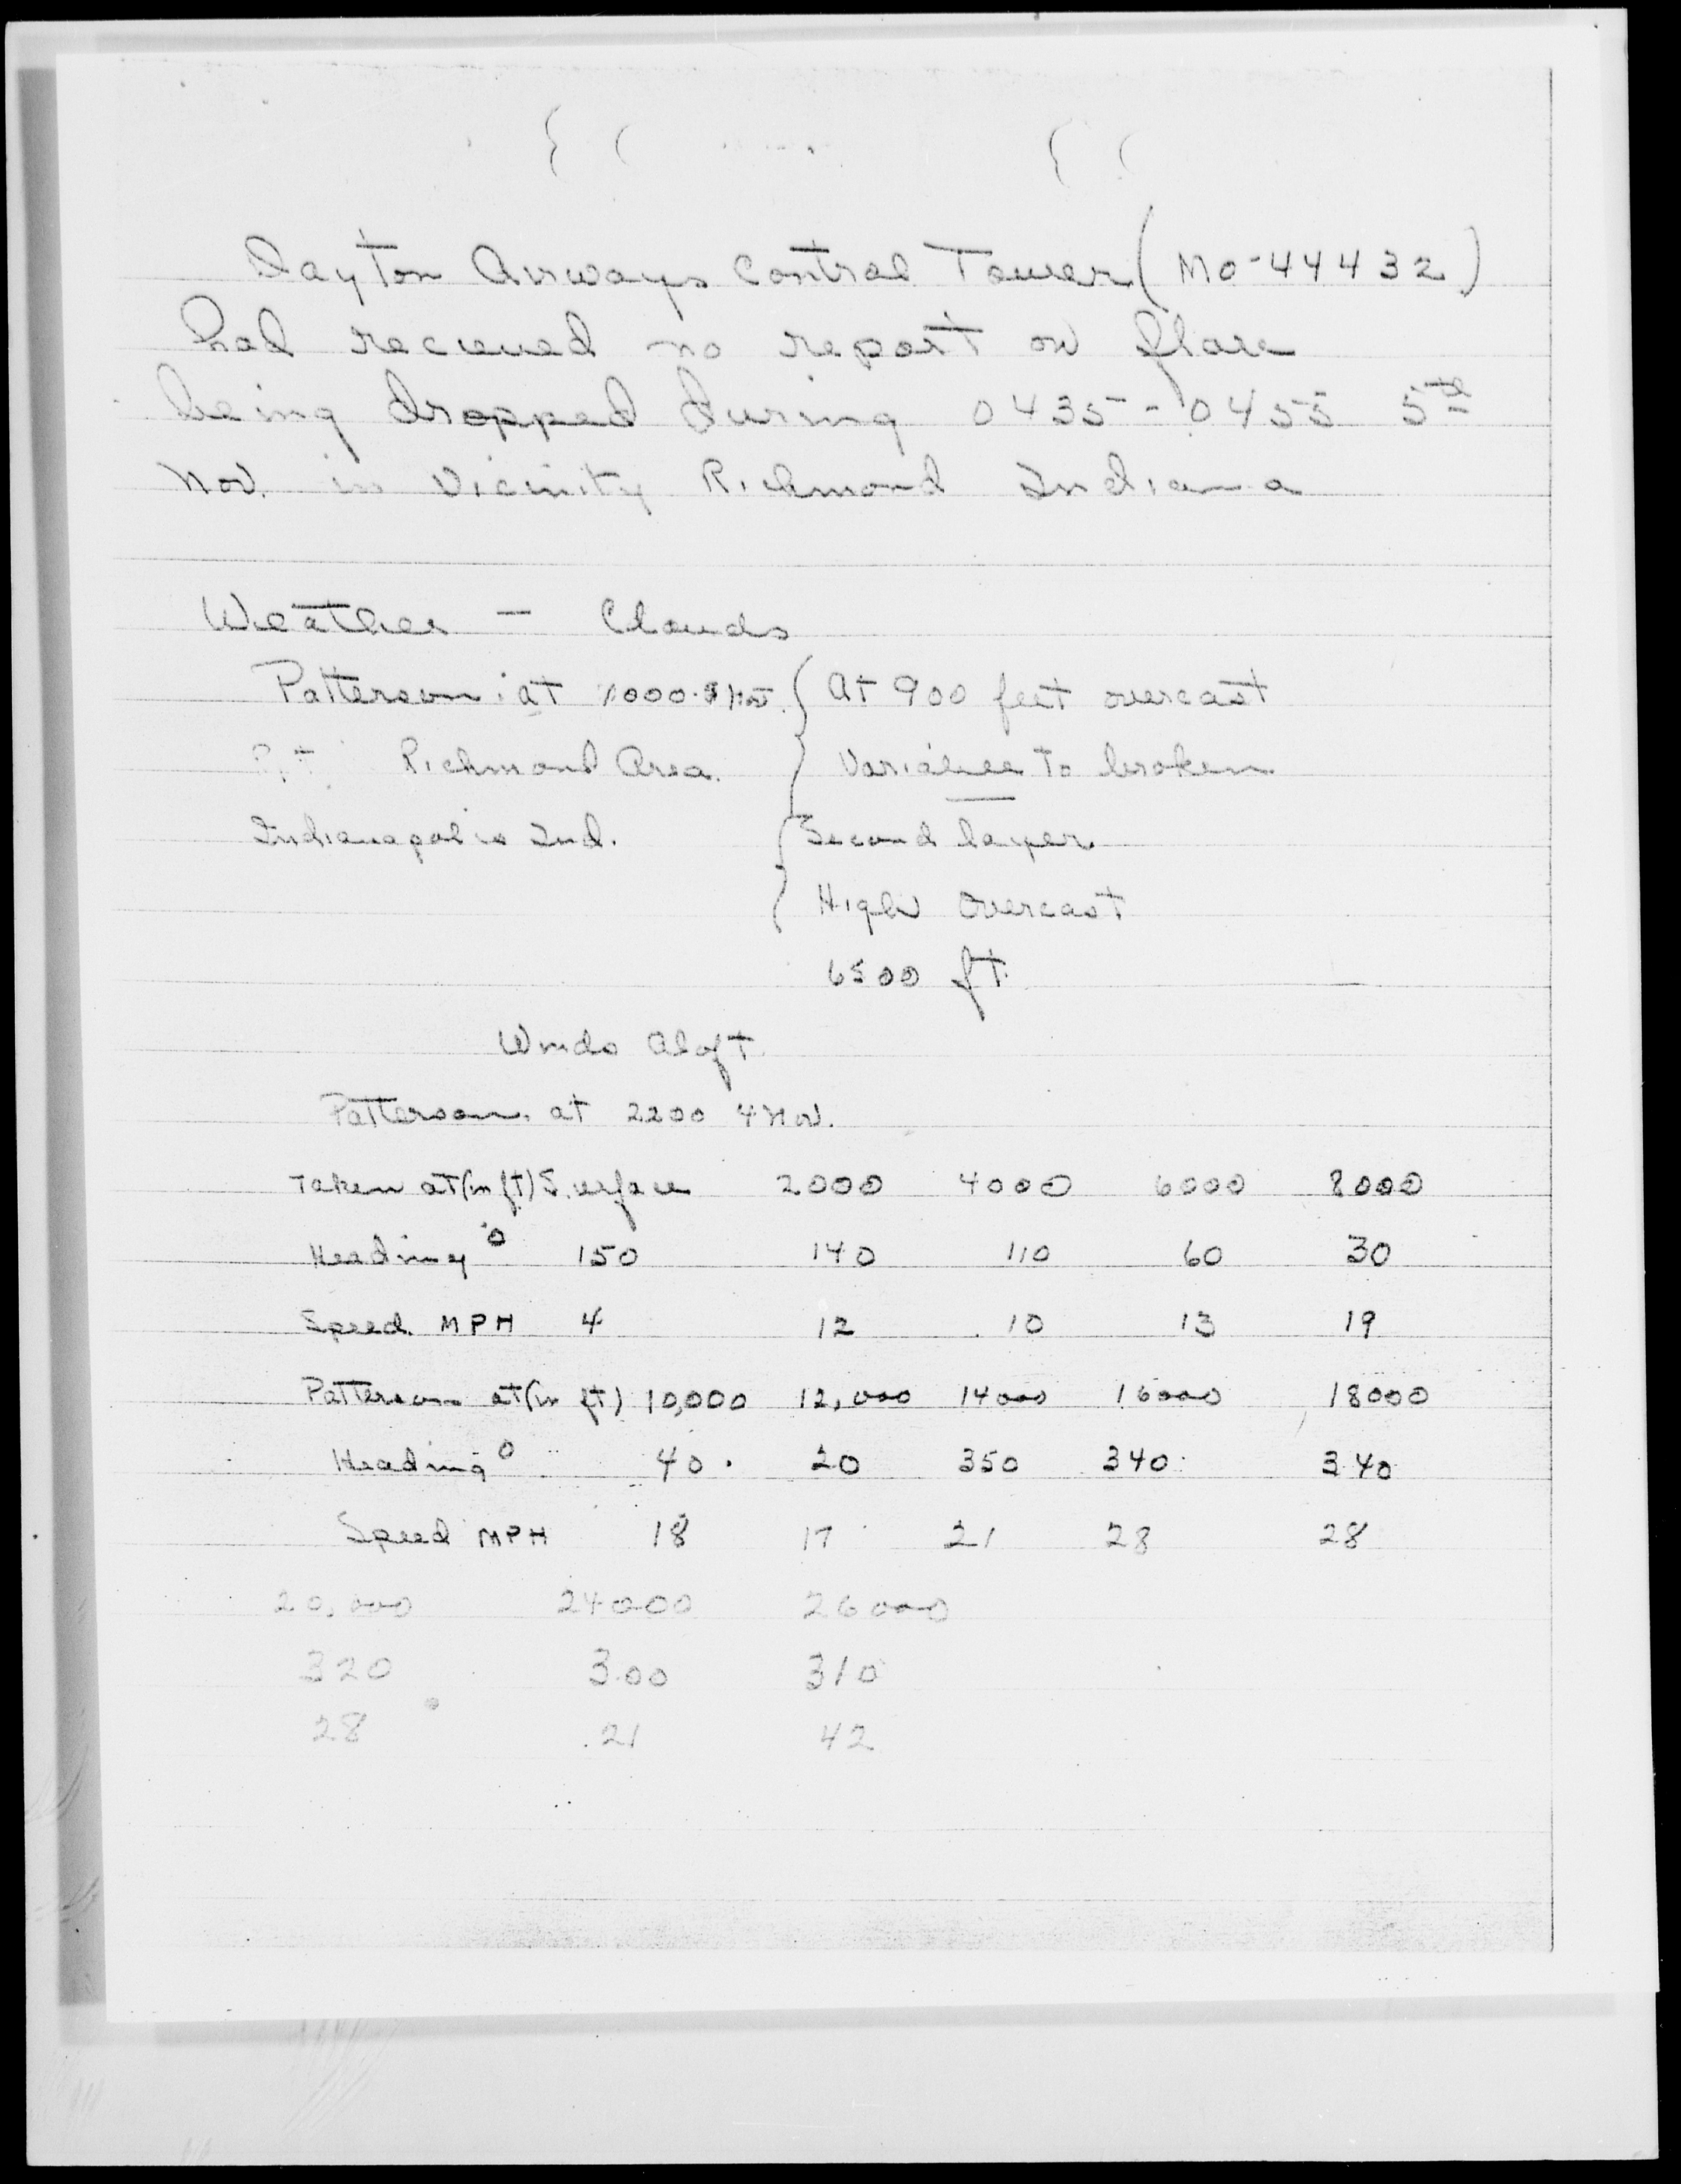 Dayton Airways Control Tower (MO-44432)
had recieved no report on flare
being dropped during 0435-0455 5th
Nov. in Vicinity Richmond Indiana
Weather - Clouds
Patterson at 1000 5 Nov. { At 900 feet overcast
Richmond Area. Variable to broken
Indianapolis Ind. { Second layer
High Overcast
6500 ft.
Winds Aloft
Patterson at 2200 4 Nov.
Taken at (in ft) Surface 2000 4000 6000 8000
Heading ° 150 140 110 60 30
Speed MPH 4 12 10 13 19
Patterson at (in ft) 10,000 12,000 14000 16000 18000
Heading ° 40 20 350 340 340
Speed MPH 18 17 21 28 28
20,000 24000 26000
320 300 310
28 21 42